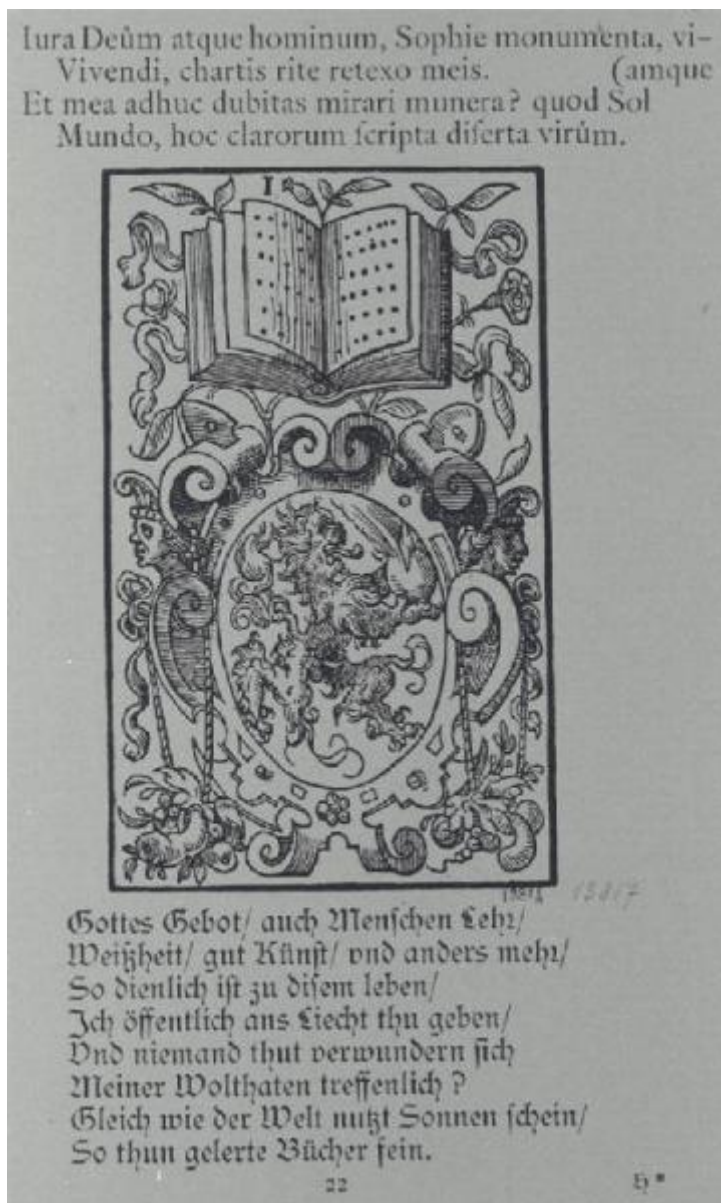 Iura Deûm atque hominum, Sophie monumenta, vi-
Vivendi, chartis rite retexo meis. (amque
Et mea adhuc dubitas mirari munera? quod Sol
Mundo, hoc clarorum ſcripta diſerta virûm.
I
Gottes Gebot/ auch Menſchen Lehr/
Weißheit/ gut Künſt/ vnd anders mehr/
So dienlich iſt zu diſem leben/
Ich öffentlich ans Liecht thu geben/
Vnd niemand thut verwundern ſich
Meiner Wolthaten treffenlich?
Gleich wie der Welt nutzt Sonnen ſchein/
So thun gelerte Bücher fein.
22 H*